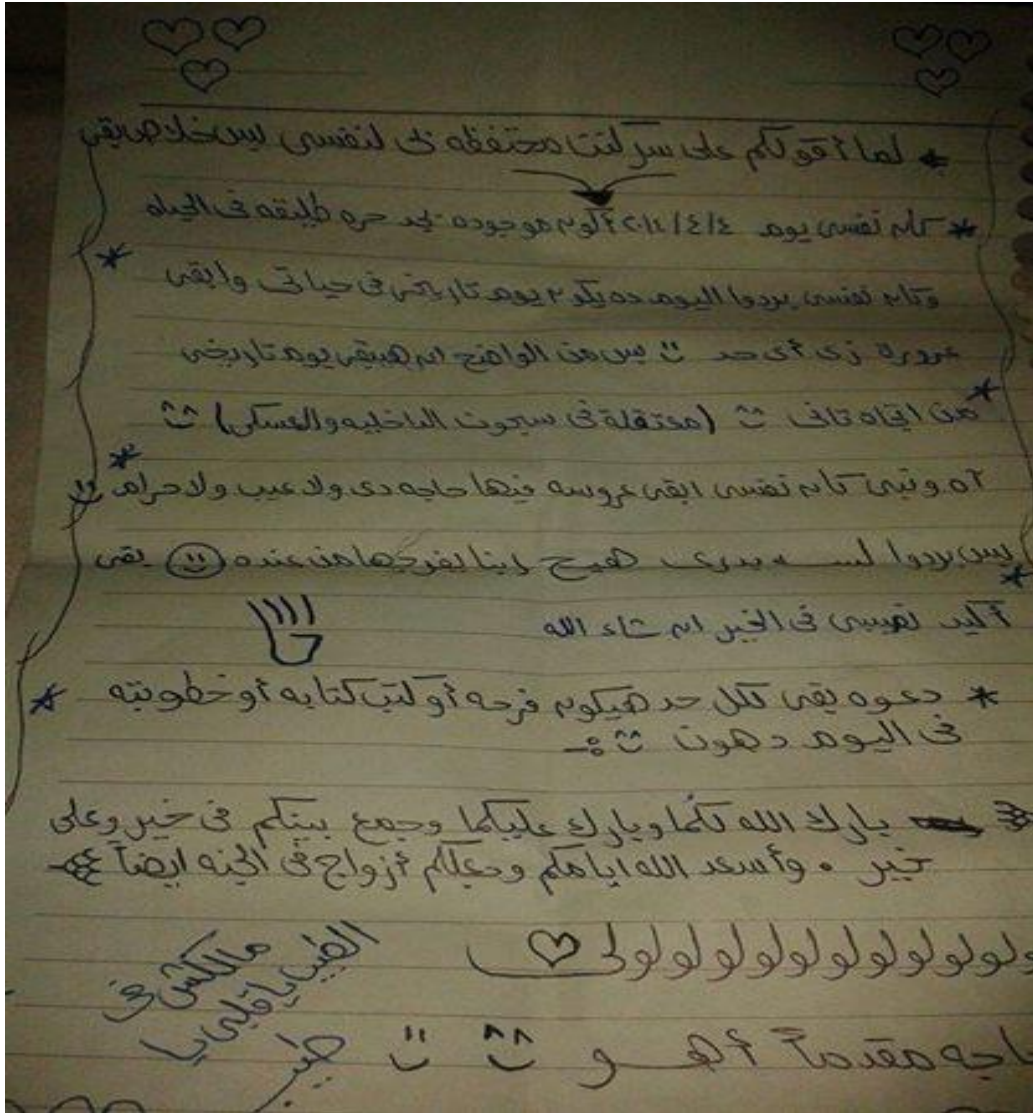 * لما أقولكم على سر كنت محتفظه فى لنفسى بس خلاص بقى
* كان نفسى يوم ٢٠١٤/٤/٤ أكون موجوده بجد حره طليقه فى الحياه
وكان نفسى بردوا اليوم ده يكون يوم تاريخى فى حياتى وابقى
عروسة زى أى حد بس من الواضح ان هيبقى يوم تاريخى
من اتجاه تانى (معتقلة فى سجون الداخليه والعسكر)
آه ونبى كان نفسى ابقى عروسه فيها حاجه دى ولا عيب ولا حرام
بس بردوا لســـه بدرى هييح ربنا يفرجها من عنده بقى
أكيد نصيبى فى الخير ان شاء الله
* دعوه بقى لكل حد هيكون فرحه أو كتب كتابه أو خطوبته
فى اليوم دهون :-
بارك الله لكُما وبارك عليكما وجمع بينكم فى خير وعلى
خير . وأسعد الله ايامكم وجعلكم أزواج فى الجنه ايضاً
لولولولولولولولولولولولى
حاجه مقدماً أهـــو
مالكش فى
الطيب يا قلبى يا
طيب